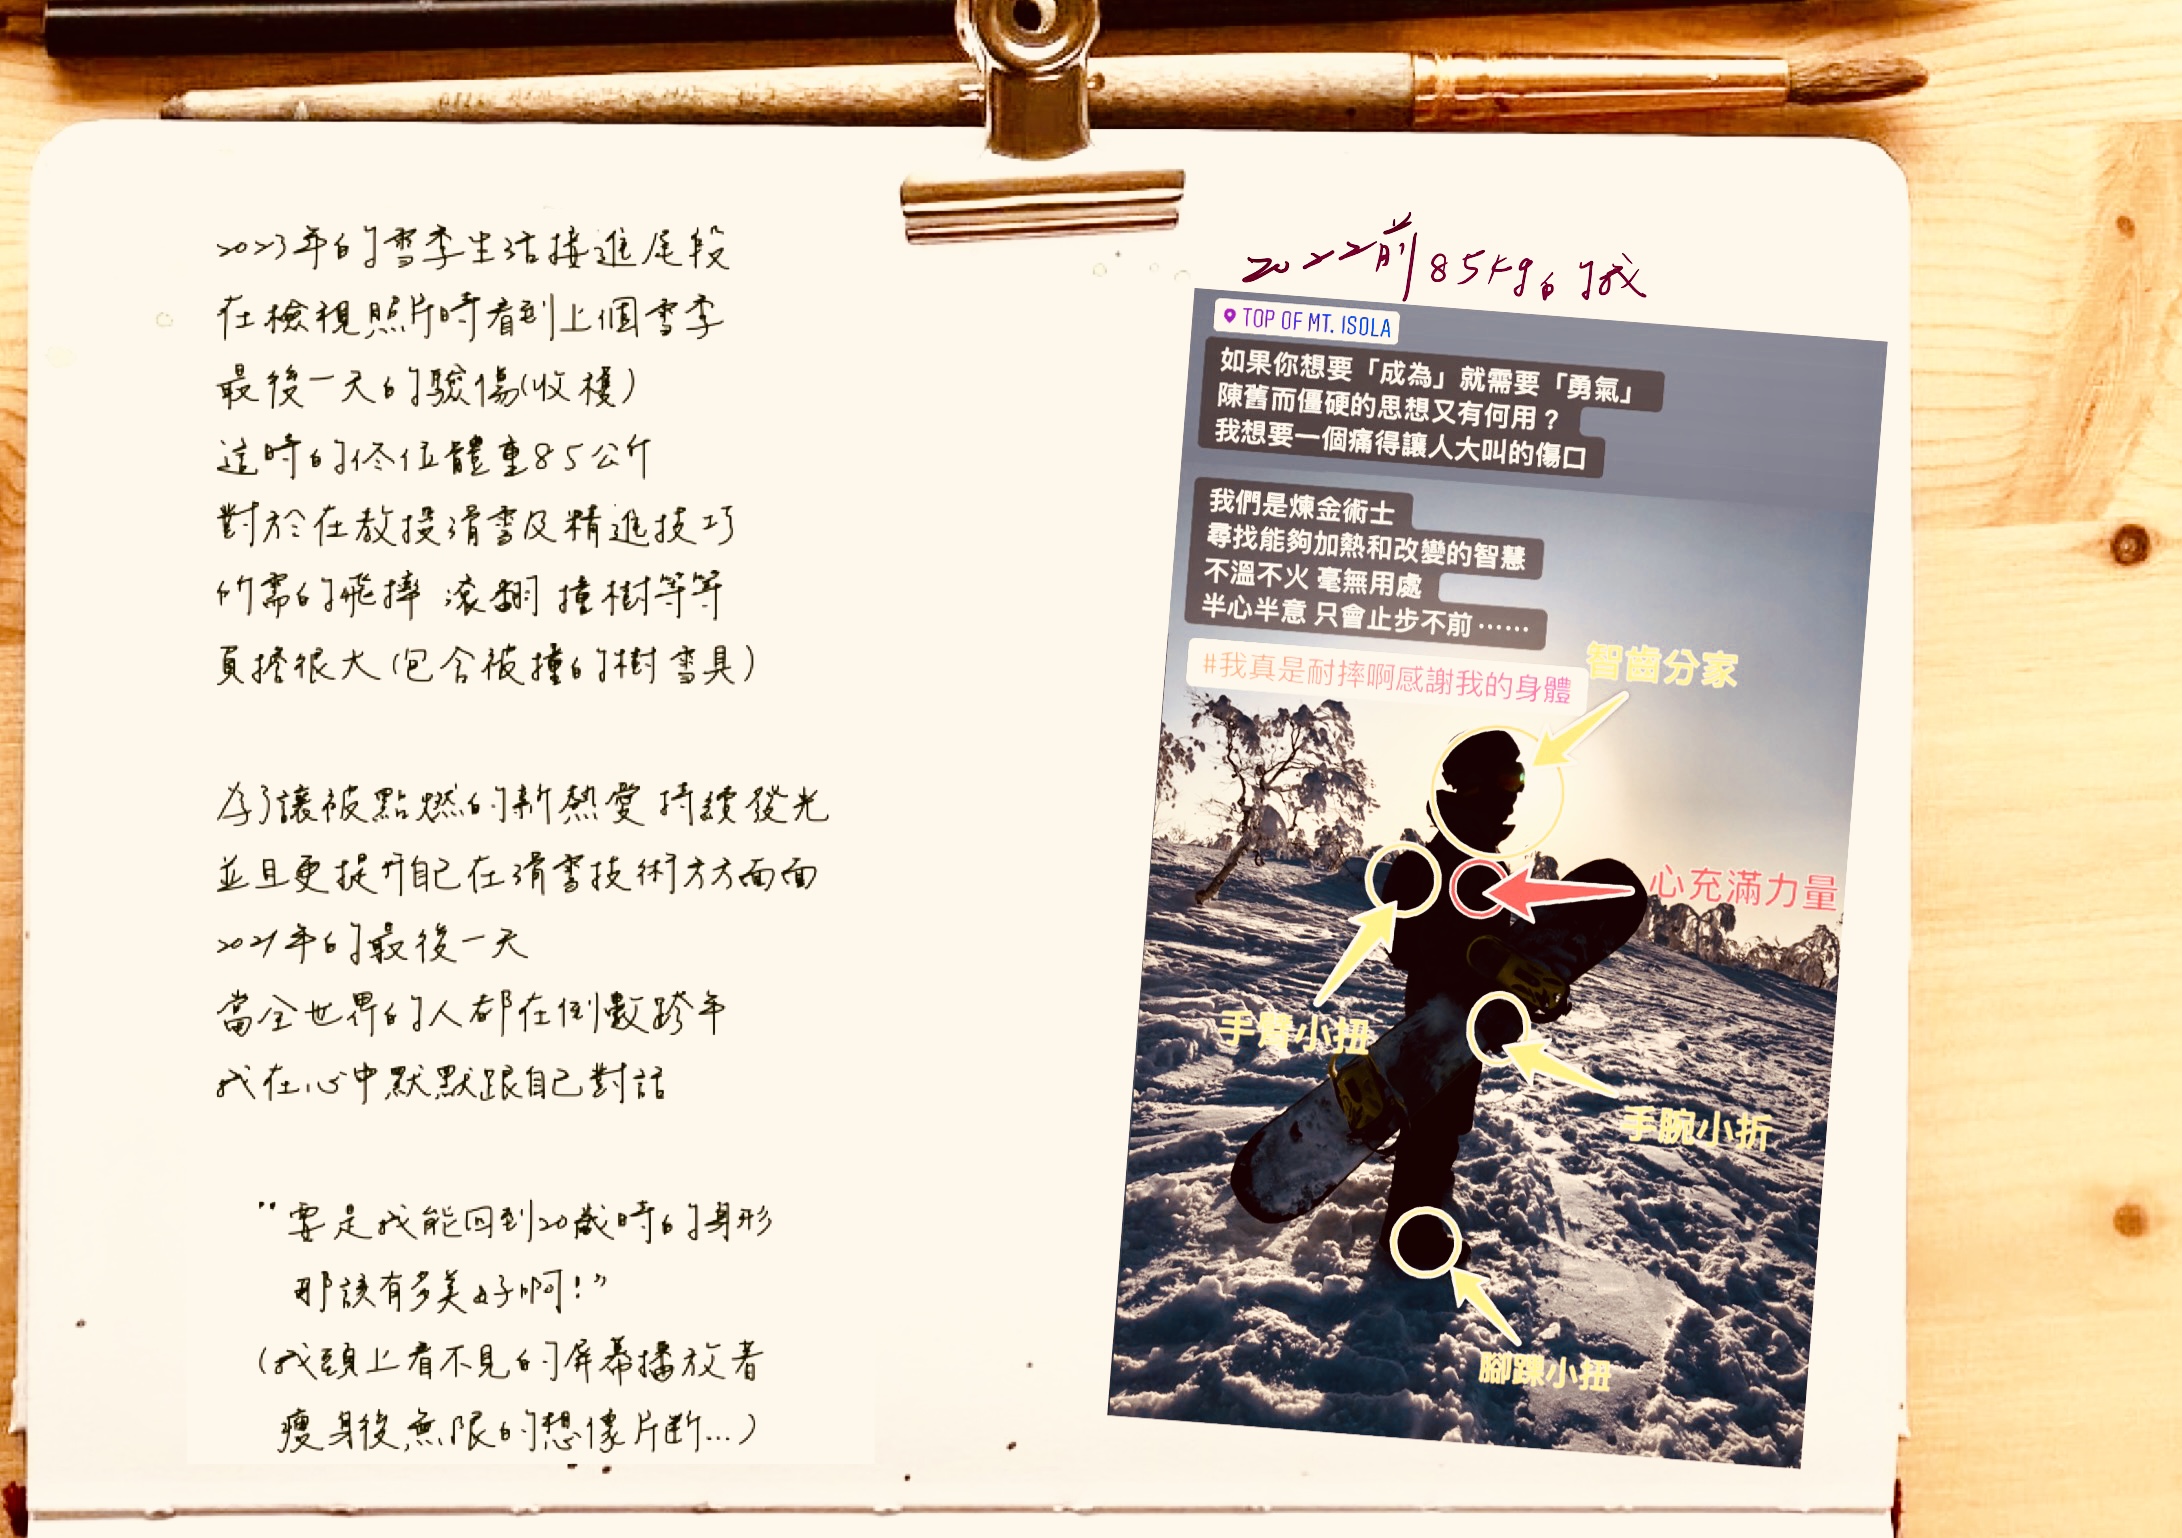 2023年的雪季生活接進尾段
在檢視照片時看到上個雪季
最後一天的驗傷(收穫)
這時的佟位體重85公斤
對於在教授滑雪及精進技巧
所需的飛摔 滾翻 撞樹等等
負擔很大(包含被撞的樹雪具)
為了讓被點燃的新熱愛持續發光
並且更提升自己在滑雪技術方方面面
2021年的最後一天
當全世界的人都在倒數跨年
我在心中默默跟自己對話
"要是我能回到20歲時的身形
那該有多美好啊!"
(我頭上看不見的屏幕播放著
瘦身後,無限的想像片斷...)
2022前85kg的我
TOP OF MT. ISOLA
如果你想要「成為」就需要「勇氣」
陳舊而僵硬的思想又有何用?
我想要一個痛得讓人大叫的傷口
我們是煉金術士
尋找能夠加熱和改變的智慧
不溫不火 毫無用處
半心半意 只會止步不前⋯⋯
#我真是耐摔啊感謝我的身體
智齒分家
心充滿力量
手臂小扭
手腕小折
腳踝小扭